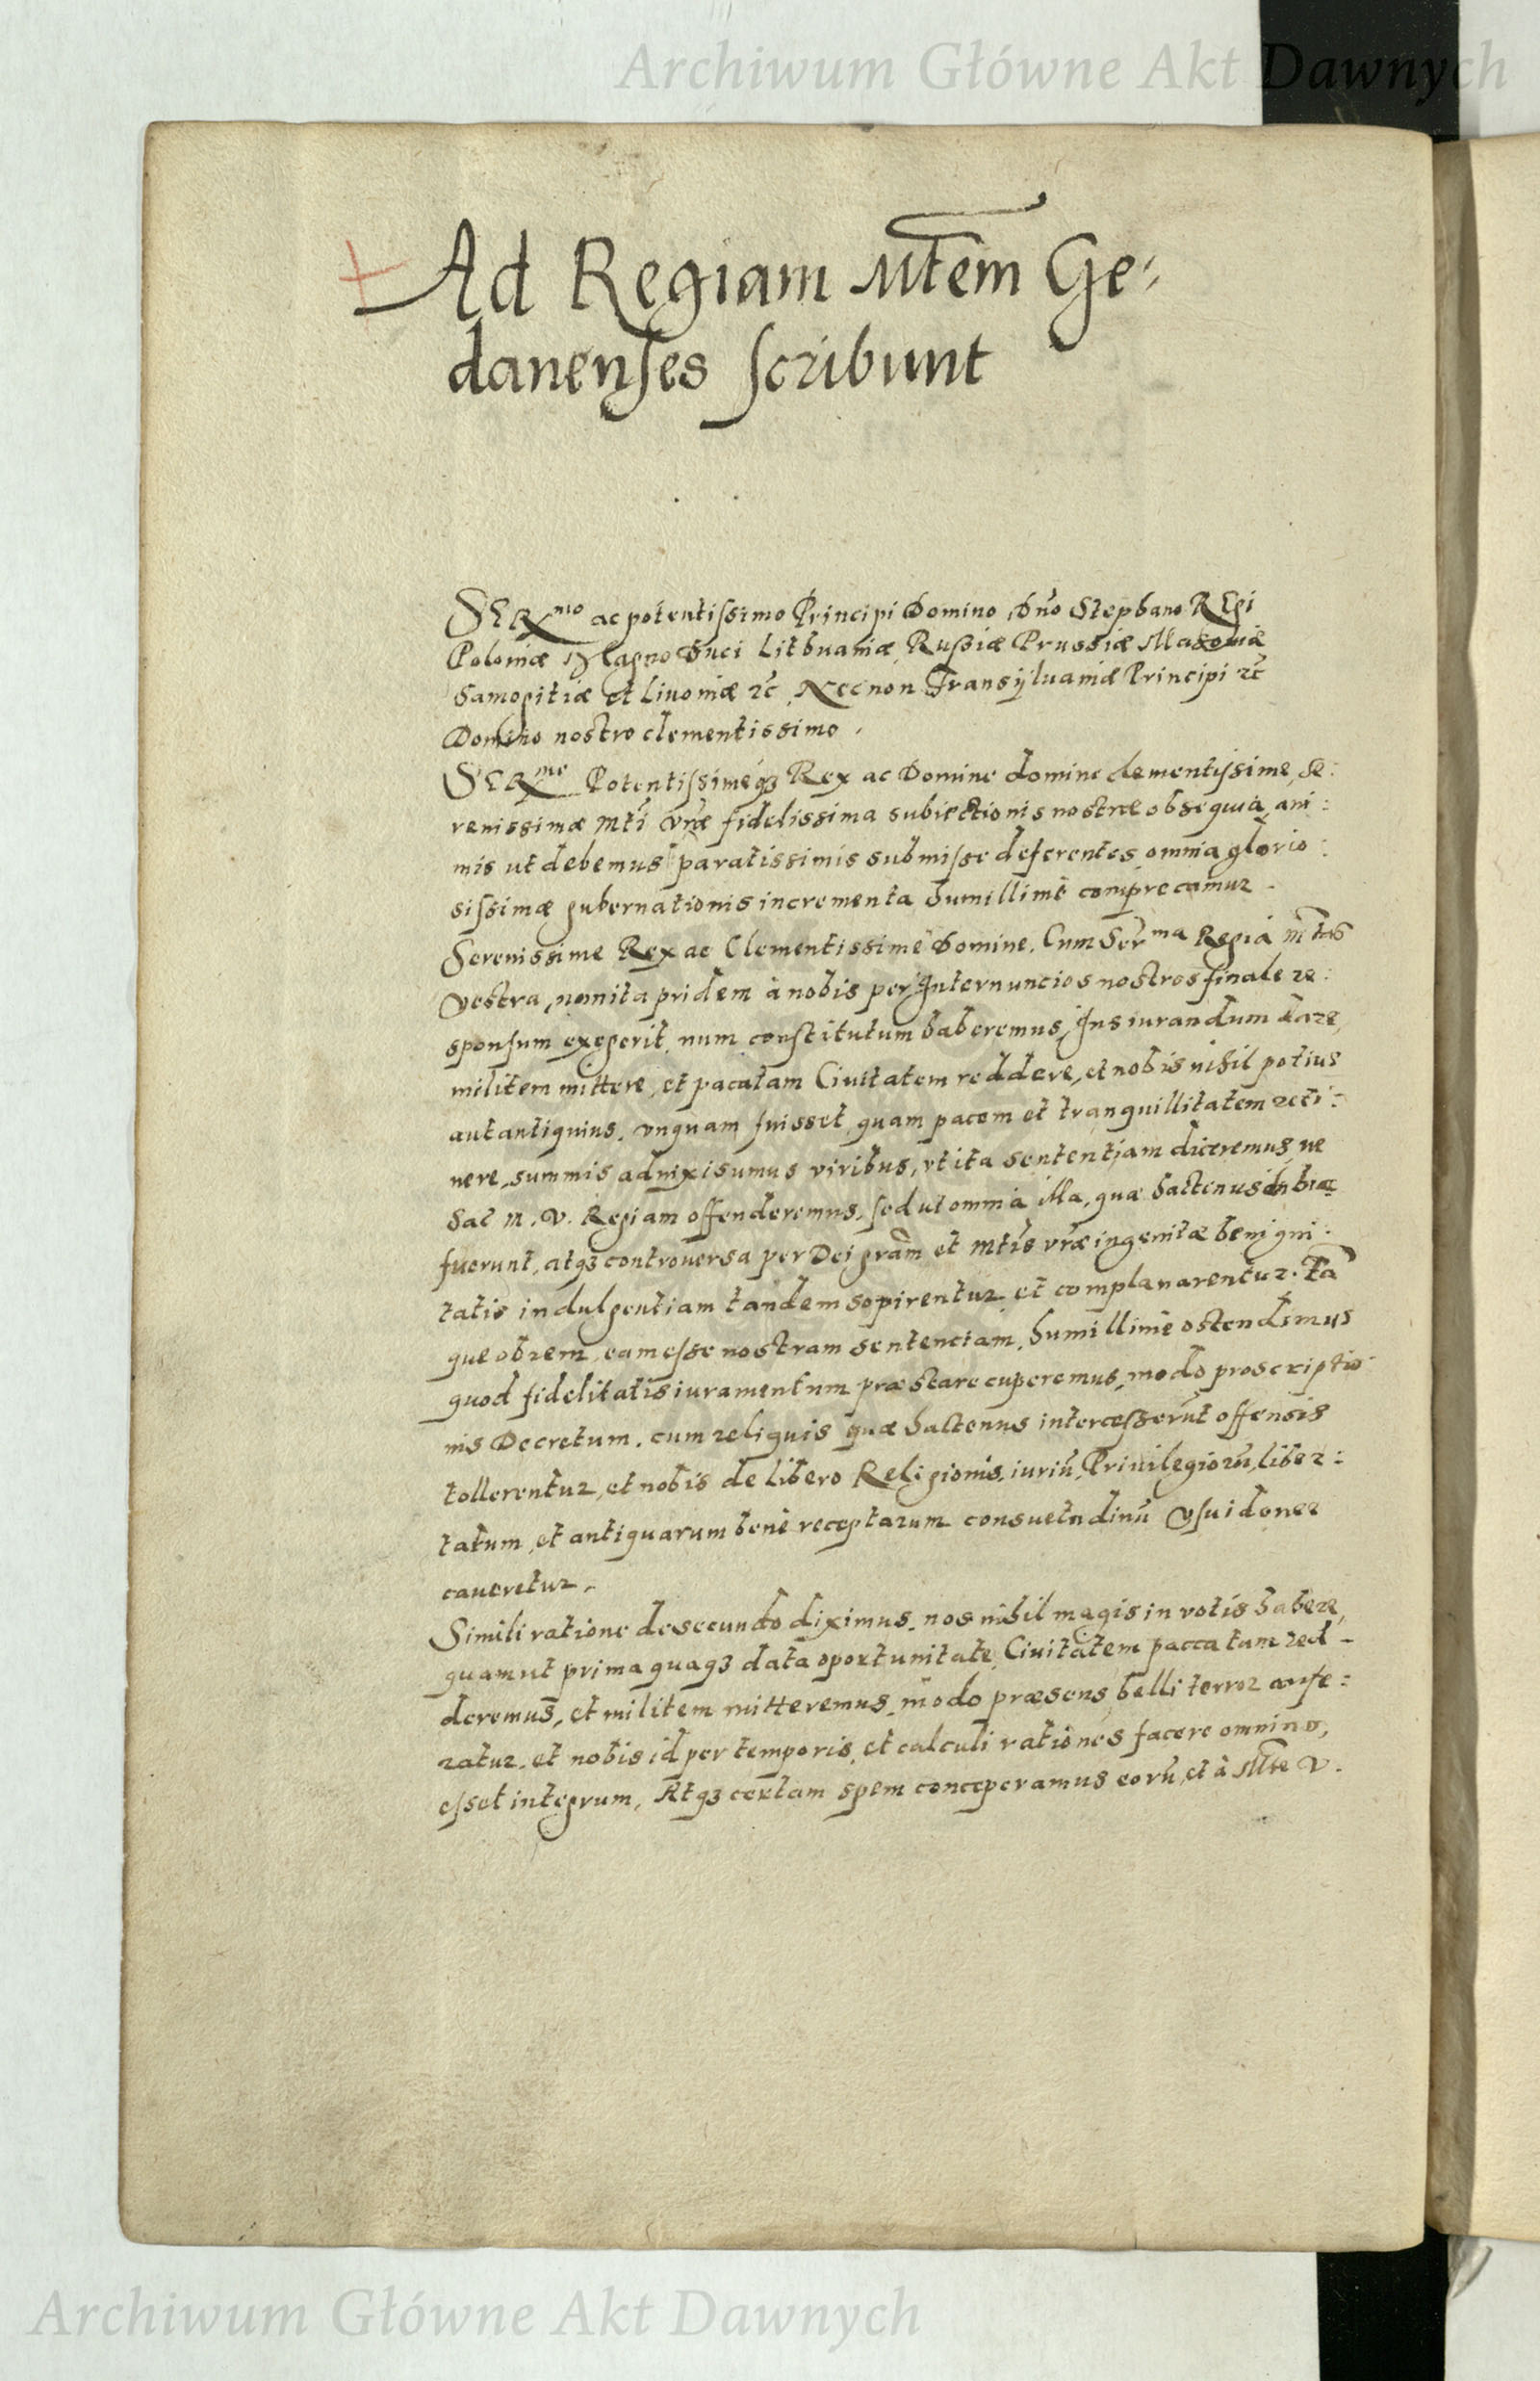 Archiwum Główne Akt Dawnych
Ad Regiam Mtem Ge-
danenses scribunt
SERmo ac potentissimo Principi Domino Dno Stephano Regi
Poloniæ Magno Duci Lithuaniæ, Russiæ Prussiæ Masouiæ
Samogitiæ et Liuoniæ etc, Nec non Transÿluaniæ Principi etc
Domino nostro clementissimo.
SERme Potentissimeq3 Rex ac Domine domine clementissime, Se:
renissimæ Mti vræ fidelissima subiectionis nostræ obsequia, ani:
mis ut debemus paratissimis submisse deferentes, omnia glorio:
sissimæ gubernationis incrementa humillimè comprecamur.
Serenissime Rex ac Clementissime Domine. Cum Serma Regia Mtas
Vestra, non ita pridem à nobis per Internuncios nostros finale re:
sponsum exegerit, num constitutum haberemus, Ius iurandum dare,
militem mittere, et pacatam Ciuitatem reddere, et nobis nihil potius
aut antiquius, vnquam fuisset, quam pacem et tranquillitatem reti:
nere, summis adnixi sumus viribus, vt ita sententiam diceremus, ne
Sac M. V. Regiam offenderemus, sed ut omnia illa, quæ hactenus dubia
fuerunt, atq3 controuersa per Dei gram et Mtis vræ ingenitæ benigni:
tatis indulgentiam tandem sopirentur et complanarentur. Tā
que obrem, eam esse nostram sentenciam, humillime ostendimus
quod fidelitatis iuramentum præstare cuperemus, modo proscriptio
nis Decretum, cum reliquis quæ hactenus intercesserūt offensis
tollerentur, et nobis de libero Religionis, iuriū, Priuilegiorū, liber:
tatum, et antiquarum benè receptarum consuetudinū vsu idonee
caueretur.
Simili ratione de secundo diximus, nos nihil magis in votis habere,
quam ut prima quaq3 data oportunitate, Ciuitatem paccatam red-
deremus, et militem mitteremus, modo præsens belli terror aufe:
ratur, et nobis id per temporis, et calculi rationes facere omnino,
esset integrum, Atq3 certam spem conceperamus eorū, et à Mte V.
Archiwum Główne Akt Dawnych